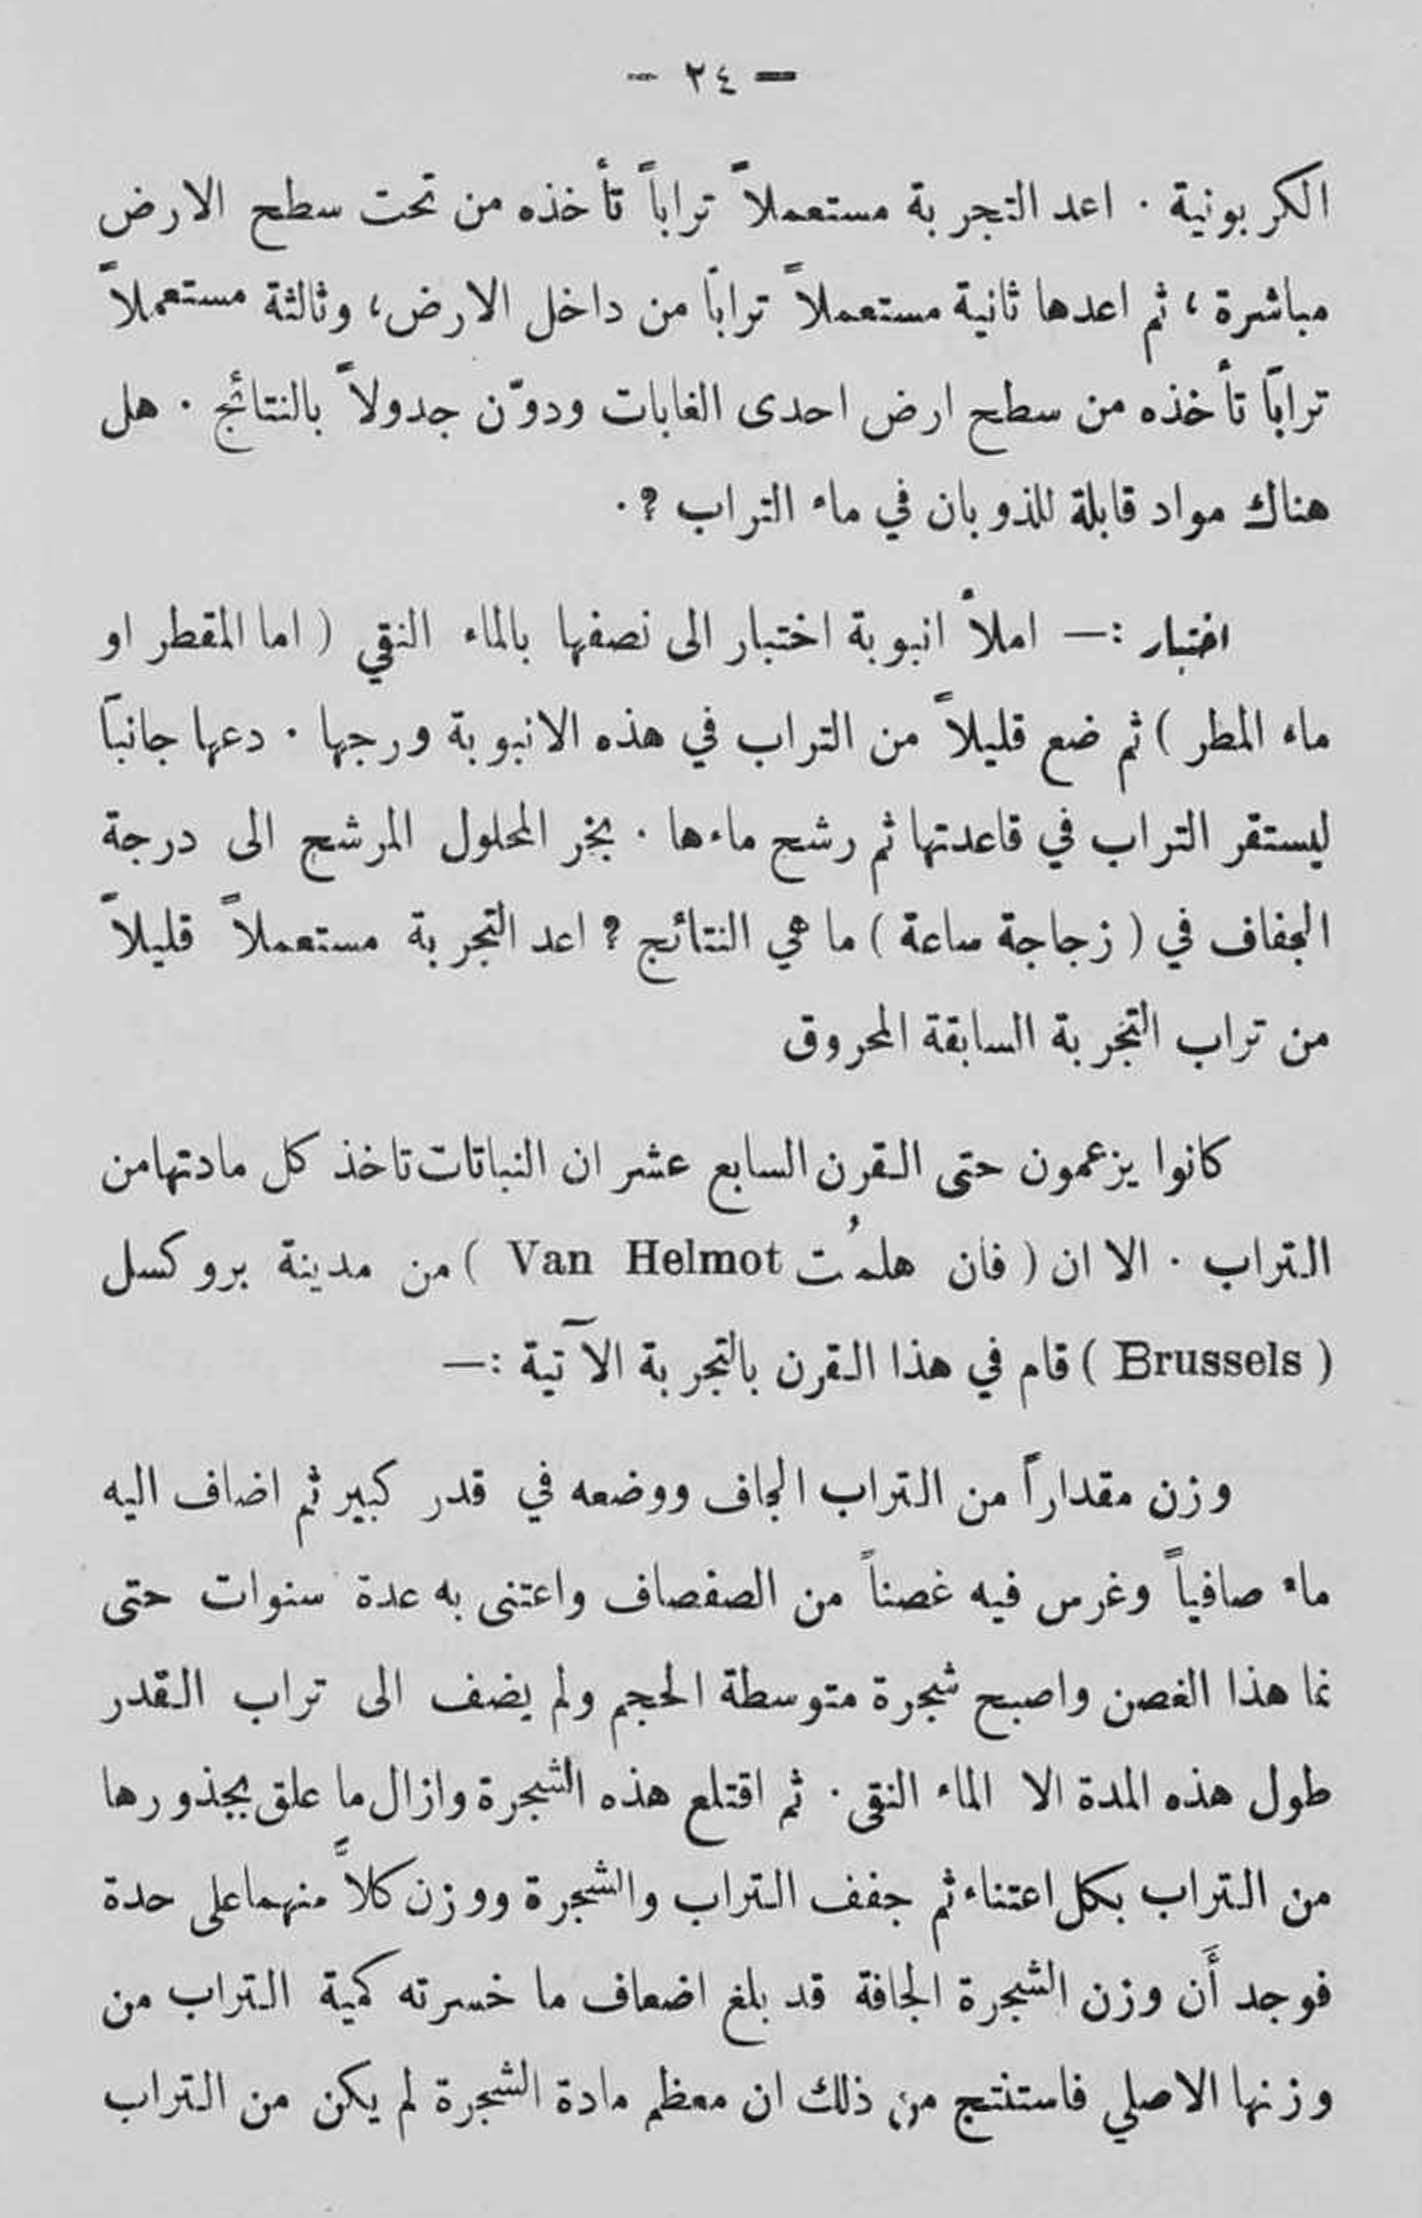 — ٢٤ —
الكربونية . اعد التجربة مستعملاً تراباً تأخذه من تحت سطح الارض
مباشرة ، ثم اعدها ثانية مستعملاً تراباً من داخل الارض، وثالثة مستعملاً
تراباً تأخذه من سطح ارض احدى الغابات ودوّن جدولاً بالنتائج . هل
هناك مواد قابلة للذوبان في ماء التراب ؟ .
اختبار :— املأ انبوبة اختبار الى نصفها بالماء النقي ( اما المقطر او
ماء المطر ) ثم ضع قليلاً من التراب في هذه الانبوبة ورجها . دعها جانباً
ليستقر التراب في قاعدتها ثم رشح ماءها . بخر المحلول المرشح الى درجة
الجفاف في ( زجاجة ساعة ) ما هي النتائج ؟ اعد التجربة مستعملاً قليلاً
من تراب التجربة السابقة المحروق
كانوا يزعمون حتى القرن السابع عشر ان النباتات تاخذ كل مادتها من
التراب . الا ان ( فان هلمُت Van Helmot ) من مدينة بروكسل
( Brussels ) قام في هذا القرن بالتجربة الآتية :—
وزن مقداراً من التراب الجاف ووضعه في قدر كبير ثم اضاف اليه
ماء صافياً وغرس فيه غصناً من الصفصاف واعتنى به عدة سنوات حتى
نما هذا الغصن واصبح شجرة متوسطة الحجم ولم يضف الى تراب القدر
طول هذه المدة الا الماء النقى . ثم اقتلع هذه الشجرة وازال ما علق بجذورها
من التراب بكل اعتناء ثم جفف التراب والشجرة ووزن كلاًّ منهما على حدة
فوجد أَن وزن الشجرة الجافة قد بلغ اضعاف ما خسرته كمية التراب من
وزنها الاصلي فاستنتج من ذلك ان معظم مادة الشجرة لم يكن من التراب